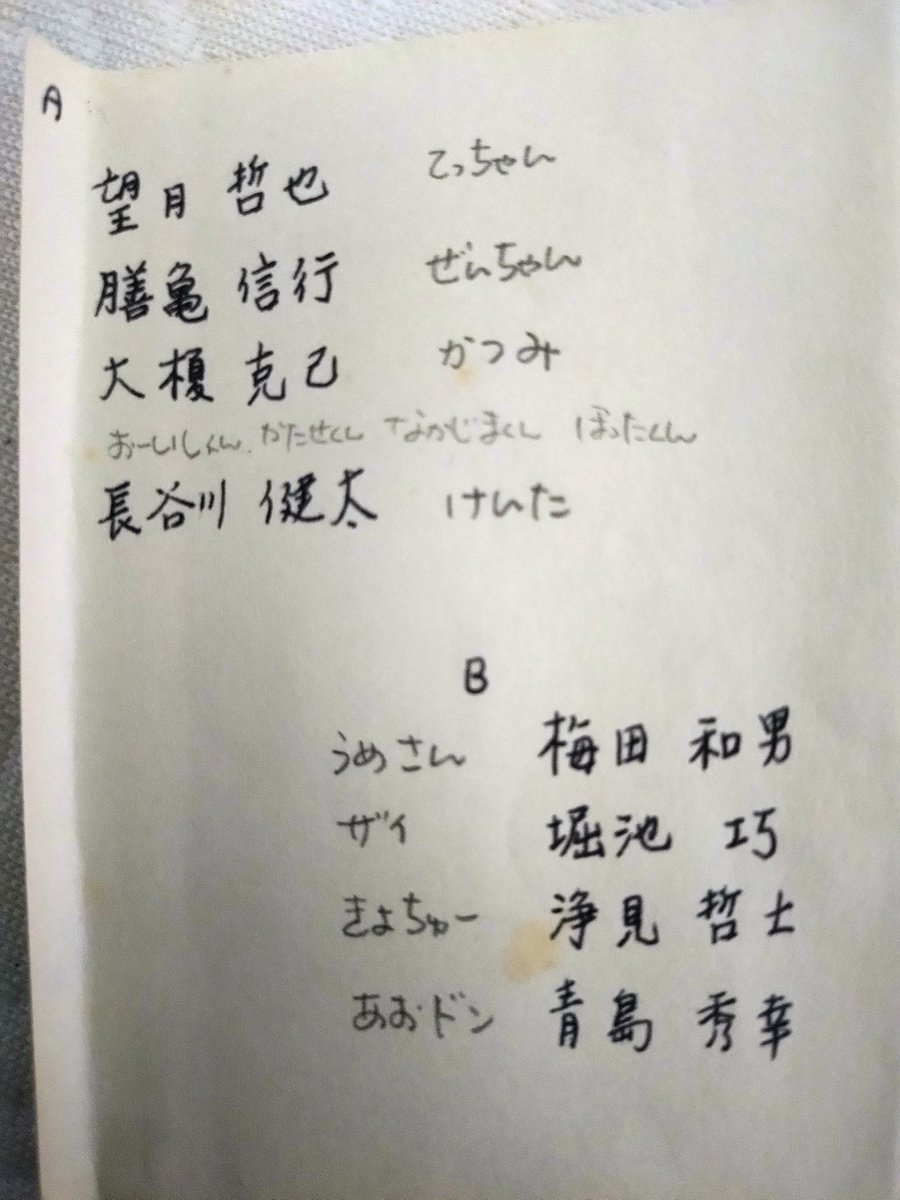 A
望月 哲也 てっちゃん
膳亀 信行 ぜんちゃん
大榎 克己 かつみ
おーいしくん、かたせくん なかじまくん ほったくん
長谷川 健太 けんた
B
うめさん 梅田 和男
ザイ 堀池 巧
きよちゅー 浄見 哲士
あおドン 青島 秀幸